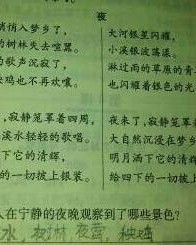 夜
悄悄入梦乡了，
的树林失去喧嚣。
的歌声沉寂了，
秧鸡也不再欢嚷。
，寂静笼罩着四周，
溪水轻轻的歌唱。
下它的清辉，
的一切披上银装。
大河银星闪耀，
小溪银波荡漾。
淋过雨的草原的青
也闪耀着银色的光
夜来了，寂静笼罩
大自然沉浸在梦乡
明月洒下它的清辉
给四下的一切披上
人在宁静的夜晚观察到了哪些景色？
水，树林 夜莺，秧鸡